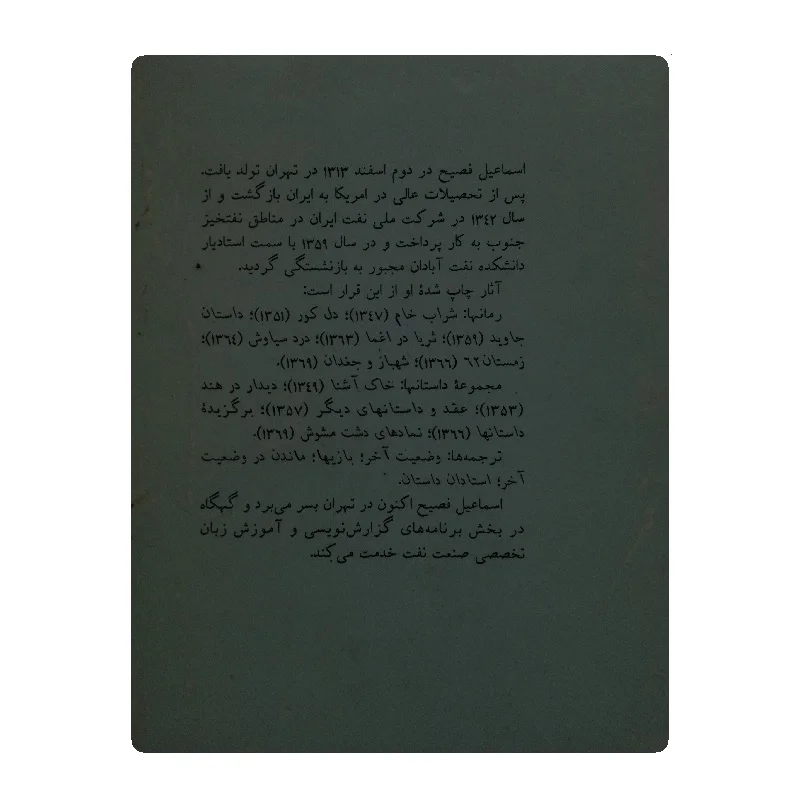 اسماعیل فصیح در دوم اسفند ۱۳۱۳ در تهران تولد یافت.
پس از تحصیلات عالی در امریکا به ایران بازگشت و از
سال ۱۳۴۲ در شرکت ملی نفت ایران در مناطق نفتخیز
جنوب به کار پرداخت و در سال ۱۳۵۹ با سمت استادیار
دانشکده نفت آبادان مجبور به بازنشستگی گردید.
آثار چاپ شدهٔ او از این قرار است:
رمانها: شراب خام (۱۳۴۷)؛ دل کور (۱۳۵۱)؛ داستان
جاوید (۱۳۵۹)؛ ثریا در اغما (۱۳۶۳)؛ درد سیاوش (۱۳۶۴)؛
زمستان ۶۲ (۱۳۶۶)؛ شهباز و جغدان (۱۳۶۹).
مجموعهٔ داستانها: خاک آشنا (۱۳۴۹)؛ دیدار در هند
(۱۳۵۳)؛ عقد و داستانهای دیگر (۱۳۵۷)؛ برگزیدهٔ
داستانها (۱۳۶۶)؛ نمادهای دشت مشوش (۱۳۶۹).
ترجمه‌ها: وضعیت آخر؛ بازیها؛ ماندن در وضعیت
آخر؛ استادان داستان.
اسماعیل فصیح اکنون در تهران بسر می‌برد و گهگاه
در بخش برنامه‌های گزارش‌نویسی و آموزش زبان
تخصصی صنعت نفت خدمت می‌کند.